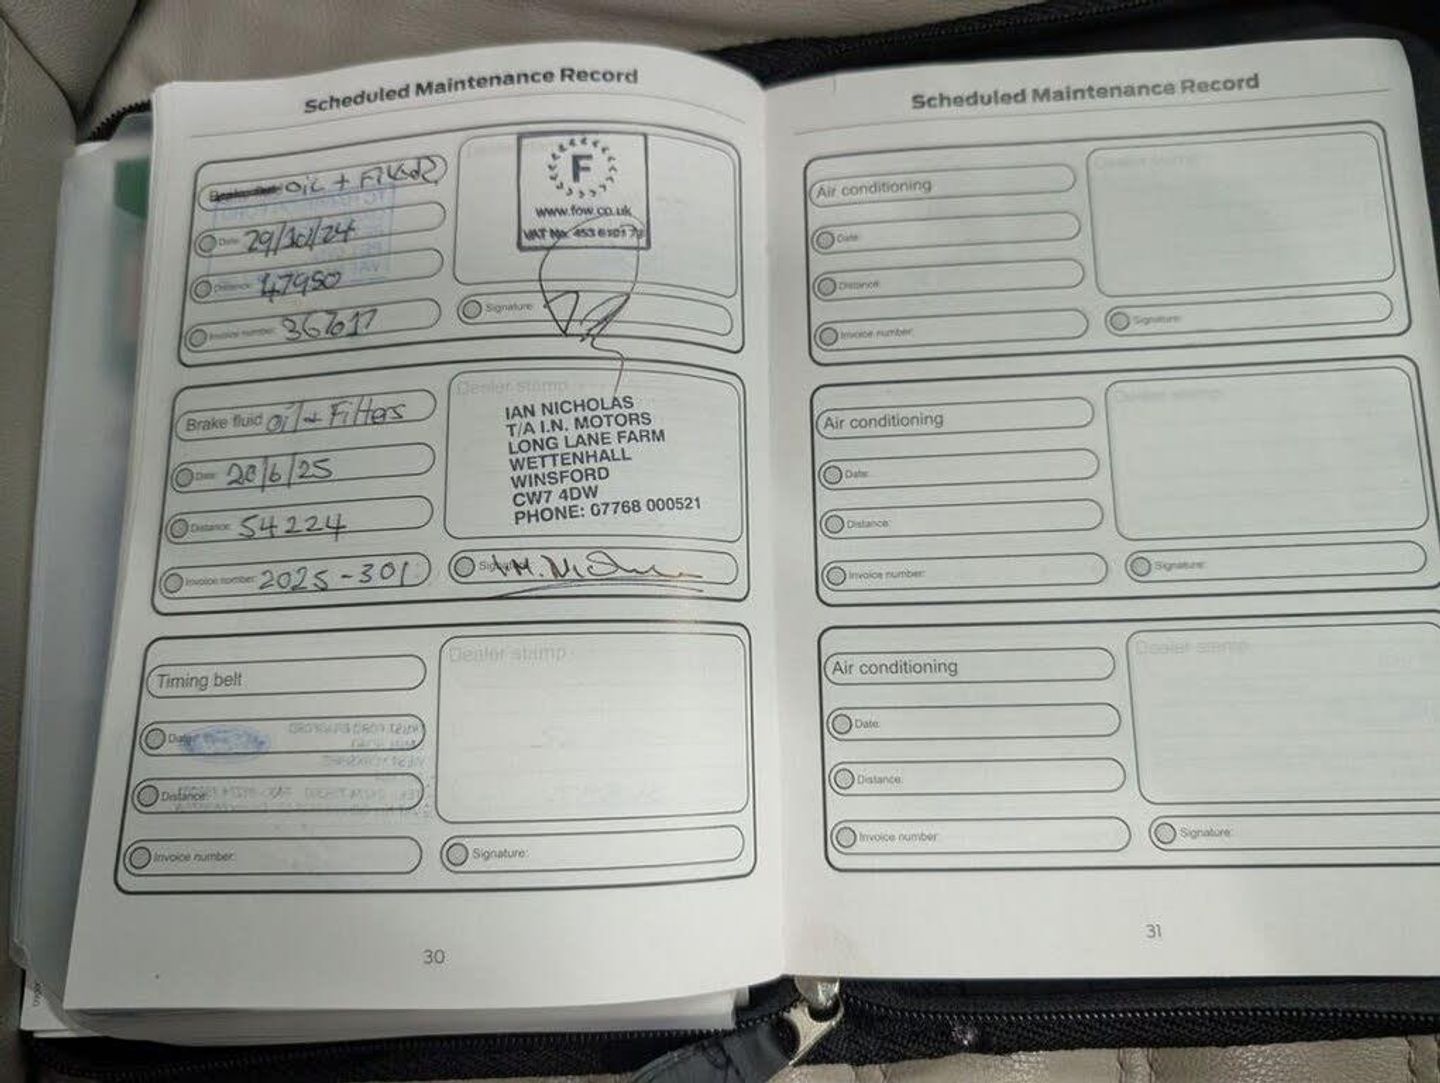 Scheduled Maintenance Record
Oil + Filter
Date: 29/10/24
Distance: 47980
Invoice number:
F
www.fow.co.uk
VAT No.
Signature:
Brake fluid Oil + Filters
Date: 20/6/25
Distance: 54224
Invoice number: 2025-301
Dealer stamp
IAN NICHOLAS
T/A I.N. MOTORS
LONG LANE FARM
WETTENHALL
WINSFORD
CW7 4DW
PHONE: 07768 000521
Signature:
Timing belt
Date:
Distance:
Invoice number:
Dealer stamp
Signature:
30
Scheduled Maintenance Record
Air conditioning
Date:
Distance:
Invoice number:
Dealer stamp
Signature:
Air conditioning
Date:
Distance:
Invoice number:
Dealer stamp
Signature:
Air conditioning
Date:
Distance:
Invoice number:
Dealer stamp
Signature:
31